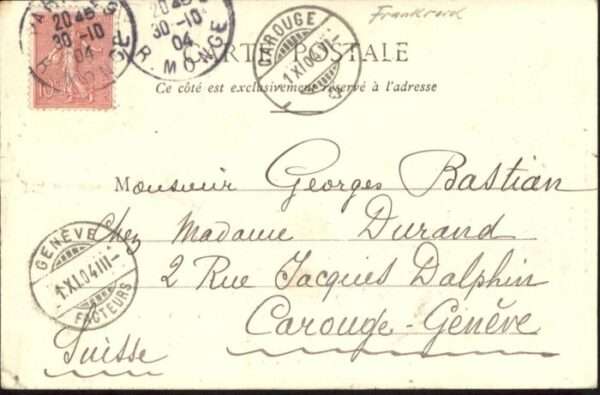 20 45
30-10
04
R. MONGE
20 45
30-10
04
R. MONGE
CAROUGE
1.XI.04.VII-
CARTE POSTALE
Ce côté est exclusivement réservé à l'adresse
Monsieur Georges Bastian
Chez Madame Durand
2 Rue Jacques Dalphin
Carouge-Genève
Suisse
GENÈVE
1.XI.04 III-
FACTEURS
10